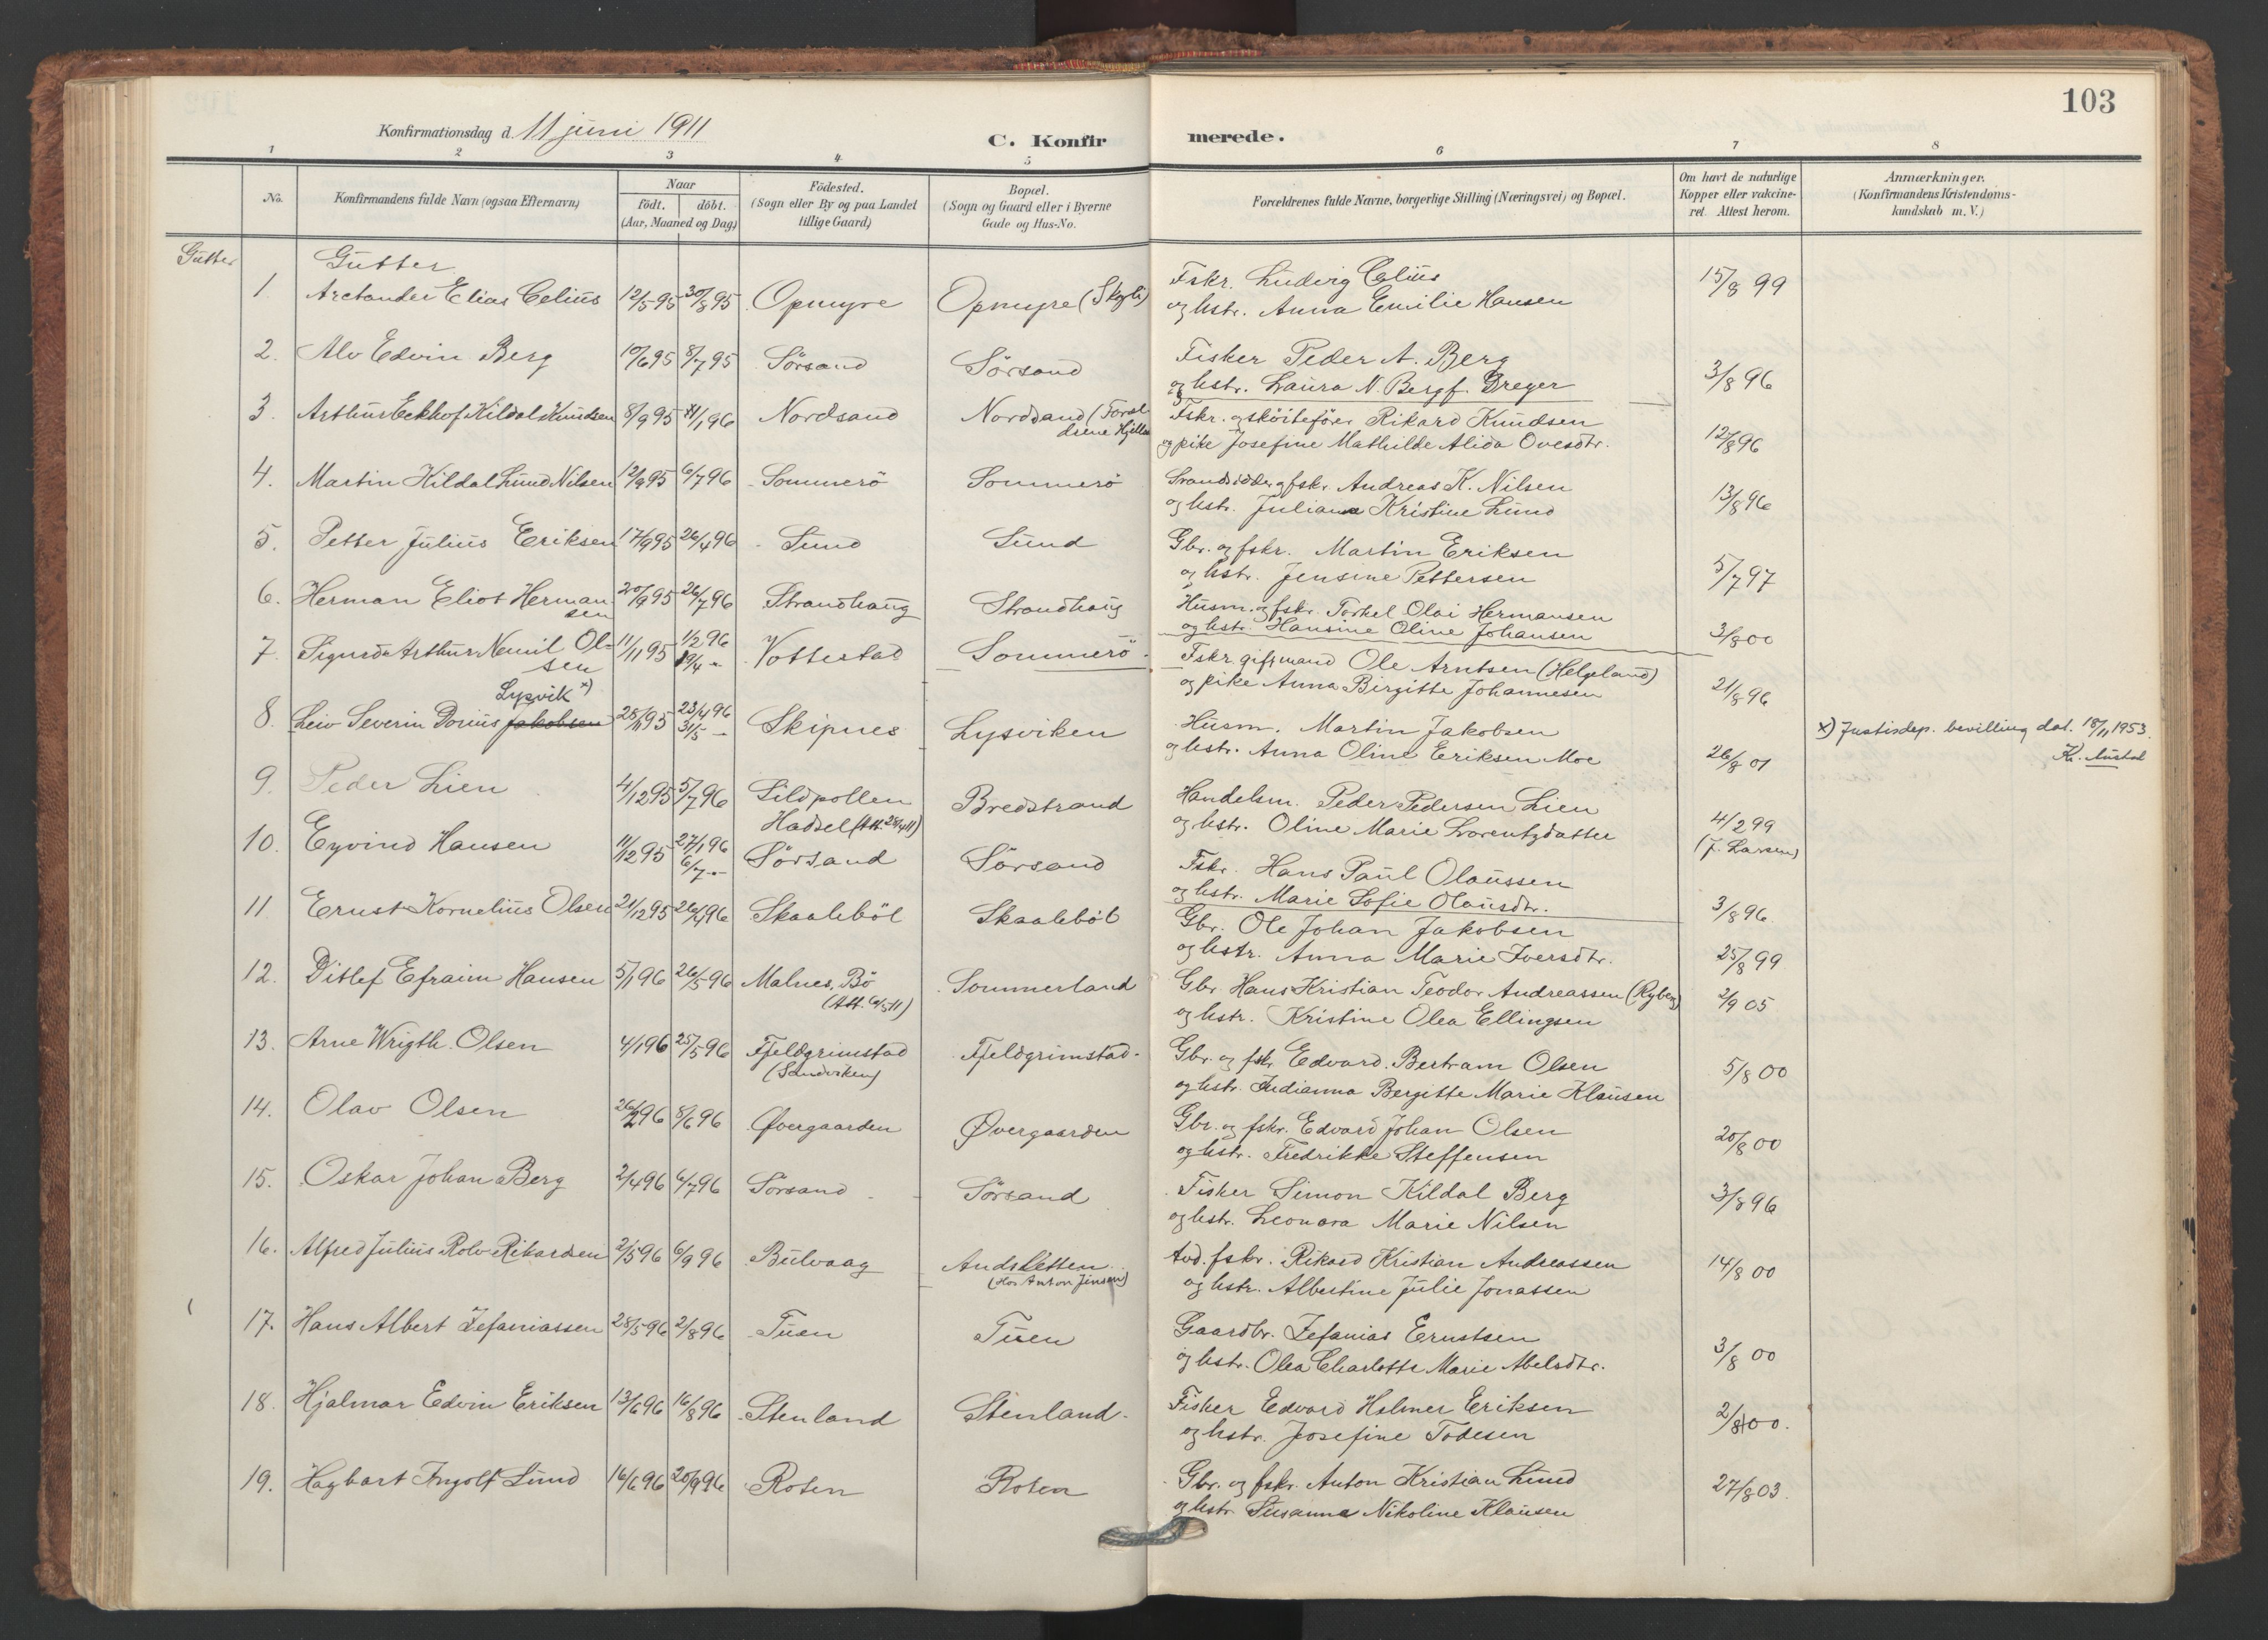 103
Konfirmationsdag d. 11 juni 1911
C. Konfirmerede.
1 2 3 4 5 6 7 8
No.
Konfirmandens fulde Navn (ogsaa Efternavn)
Naar
födt. döbt.
(Aar, Maaned og Dag)
Födested.
(Sogn eller By og paa Landet
tillige Gaard)
Bopæl.
(Sogn og Gaard eller i Byerne
Gade og Hus-No.
Forældrenes fulde Navne, borgerlige Stilling (Næringsvei) og Bopæl.
Om havt de naturlige
Kopper eller vakcine-
ret. Attest herom.
Anmærkninger.
(Konfirmandens Kristendoms-
kundskab m. V.)
Gutter Gutter
1. Arctander Elias Celius 12/5 95 30/8 95 Opmyre Opmyre (Skogli) Fskr. Ludvig Celius 15/8 99
og hstr. Anna Emilie Hansen
2. Alv Edvin Berg 10/6 95 8/7 95 Sörsand Sörsand Fisker Peder A. Berg 3/8 96
og hstr. Laura N. Berg f. Dreyer
3. Arthur Eckhof Kildal Knudsen 8/9 95 /1 96 Nordsand Nordsand (Foræl-
drene Hjellan
Fskr. og sköitefören Rikard Knudsen 12/8 96
og pike Josefine Mathilde Alida Ovesdtr.
4. Martin Kildal Lund Nilsen 12/9 95 6/7 96 Sommerö Sommerö Strandsidder og fskr. Andreas K. Nilsen 13/8 96
og hstr. Juliane Kristine Lund
5. Petter Julius Eriksen 17/9 95 26/4 96 Sund Sund Gbr. og fskr. Martin Eriksen 5/7 97
og hstr. Jensine Pettersen
6. Herman Eliot Herman-
sen 20/9 95 26/7 96 Strandhaug Strandhaug Husm. og fskr. Torkel Olai Hermansen 3/8 00
og hstr. Hansine Oline Johansen
7. Sigurd Arthur Nemil Ol-
sen 11/11 95 1/2 96
19/4 - Vottestad Sommerö Fskr. gift mand Ole Arntsen (Helgeland) 21/8 96
og pike Anna Birgitte Johannesen
Lysvik x)
8. Leiv Severin Dorius Jakobsen 28/11 95 23/4 96
31/5 - Skipnes Lysviken Husm. Martin Jakobsen 26/8 01
og hstr. Anna Oline Eriksen Moe
x) Justisdep. bevilling dat. 18/11 1953.
9. Peder Lien 4/12 95 5/7 96 Sildpollen
Hadsel (Att. 28/4 11) Bredstrand Handelsm. Peder Pedersen Lien 4/2 99
og hstr. Oline Marie Lorentzdatter (J. Larsen)
10. Eyvind Hansen 11/12 95 27/1 96
6/7 - Sörsand Sörsand Fskr. Hans Paul Olaussen 3/8 96
og hstr. Marie Sofie Olausdtr.
11. Ernst Kornelius Olsen 21/12 95 26/4 96 Skaaleböl Skaaleböl Gbr. Ole Johan Jakobsen 25/8 99
og hstr. Anna Marie Iversdtr.
12. Ditlef Efraim Hansen 5/1 96 26/5 96 Malnes, Bö
(Att. 6/5 11) Sommerland Gbr. Hans Kristian Teodor Andreassen (Ryberg) 2/9 05
og hstr. Kristine Olea Ellingsen
13. Arne Wrigth. Olsen 4/1 96 25/5 96 Fjeldgrimstad
(Sandviken) Fjeldgrimstad. Gbr. og fskr. Edvard. Bertram Olsen 5/8 00
og hstr. Indianna Bergitte Marie Klausen
14. Olav Olsen 26/2 96 8/6 96 Øvergaarden Øvergaarden Gbr. og fskr. Edvard Johan Olsen 20/8 00
og hstr. Fredrikke Steffensen
15. Oskar Johan Berg 2/4 96 6/7 96 Sörsand Sörsand Fisker Simon Kildal Berg 3/8 96
og hstr. Leonara Marie Nilsen
16. Alfred Julius Rolv Rikardsen 2/5 96 6/9 96 Bulvaag Andsletten
(Hos Anton Jensen) Avd. fskr. Rikard Kristian Andreassen 14/8 00
og hstr. Albertine Julie Jonassen
17. Hans Albert Zefaniassen 28/5 96 2/8 96 Tuen Tuen Gaardbr. Zefanias Ernstsen 3/8 00
og hstr. Olea Charlotte Marie Abelsdtr.
18. Hjalmar Edvin Eriksen 13/6 96 16/8 96 Stenland Stenland. Fisker Edvard Halmer Eriksen 2/8 00.
og hstr. Josefine Todesen
19. Hagbart Ingolf Lund 16/6 96 20/9 96 Roten Roten Gbr. og fskr. Anton Kristian Lund 27/8 03.
og hstr. Susanna Nikoline Klausen